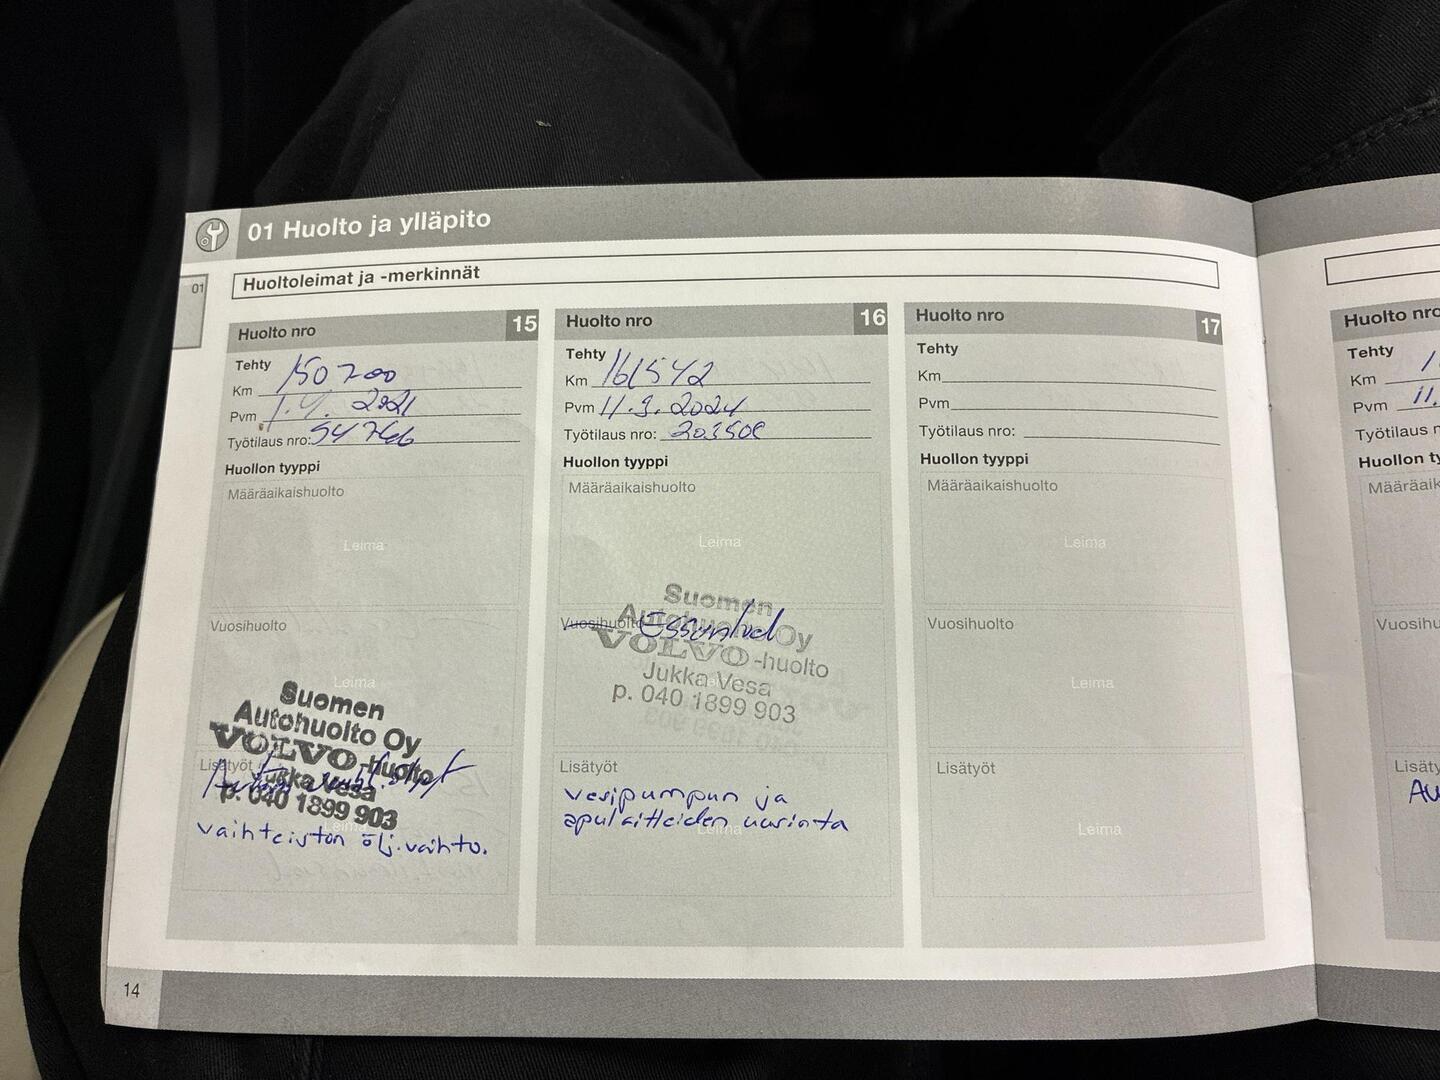 01 Huolto ja ylläpito
01
Huoltoleimat ja -merkinnät
Huolto nro 15
Tehty
Km 150 700
Pvm 1.4. 2021
Työtilaus nro: 54766
Huollon tyyppi
Määräaikaishuolto
Leima
Vuosihuolto
Leima
Suomen
Autohuolto Oy
VOLVO-huolto
Jukka Vesa
p. 040 1899 903
Lisätyöt
Leima
vaihteiston ölj.vaihto.
Huolto nro 16
Tehty
Km 161542
Pvm 11.9.2024
Työtilaus nro:
Huollon tyyppi
Määräaikaishuolto
Leima
Vuosihuolto Essential
Suomen
Autohuolto Oy
VOLVO-huolto
Jukka Vesa
p. 040 1899 903
Lisätyöt
vesipumpun ja
apulaitteiden uusinta
Leima
Huolto nro 17
Tehty
Km
Pvm
Työtilaus nro:
Huollon tyyppi
Määräaikaishuolto
Leima
Vuosihuolto
Leima
Lisätyöt
Leima
14
Huolto nro
Tehty
Km 1
Pvm 11.
Työtilaus n
Huollon ty
Määräaik
Vuosihu
Lisäty
Au